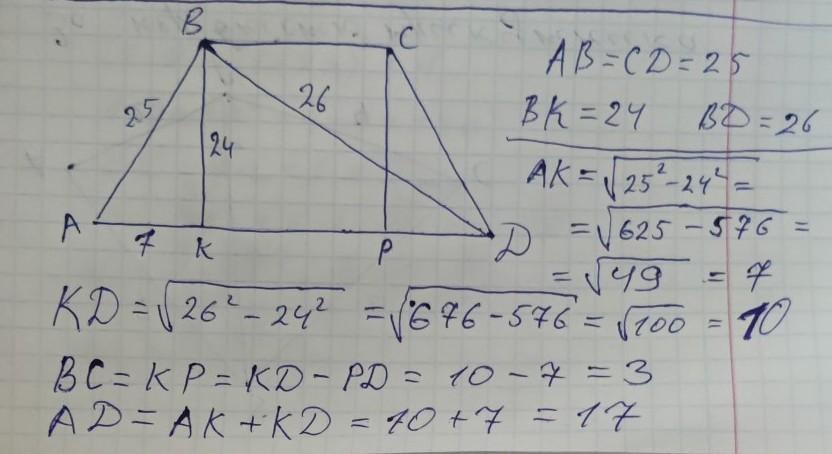 B
C
25
26
24
A
7
K
P
D
AB = CD = 25
BK = 24 BD = 26
AK = √25² - 24² =
= √625 - 576 =
= √49 = 7
KD = √26² - 24² = √676 - 576 = √100 = 10
BC = KP = KD - PD = 10 - 7 = 3
AD = AK + KD = 10 + 7 = 17